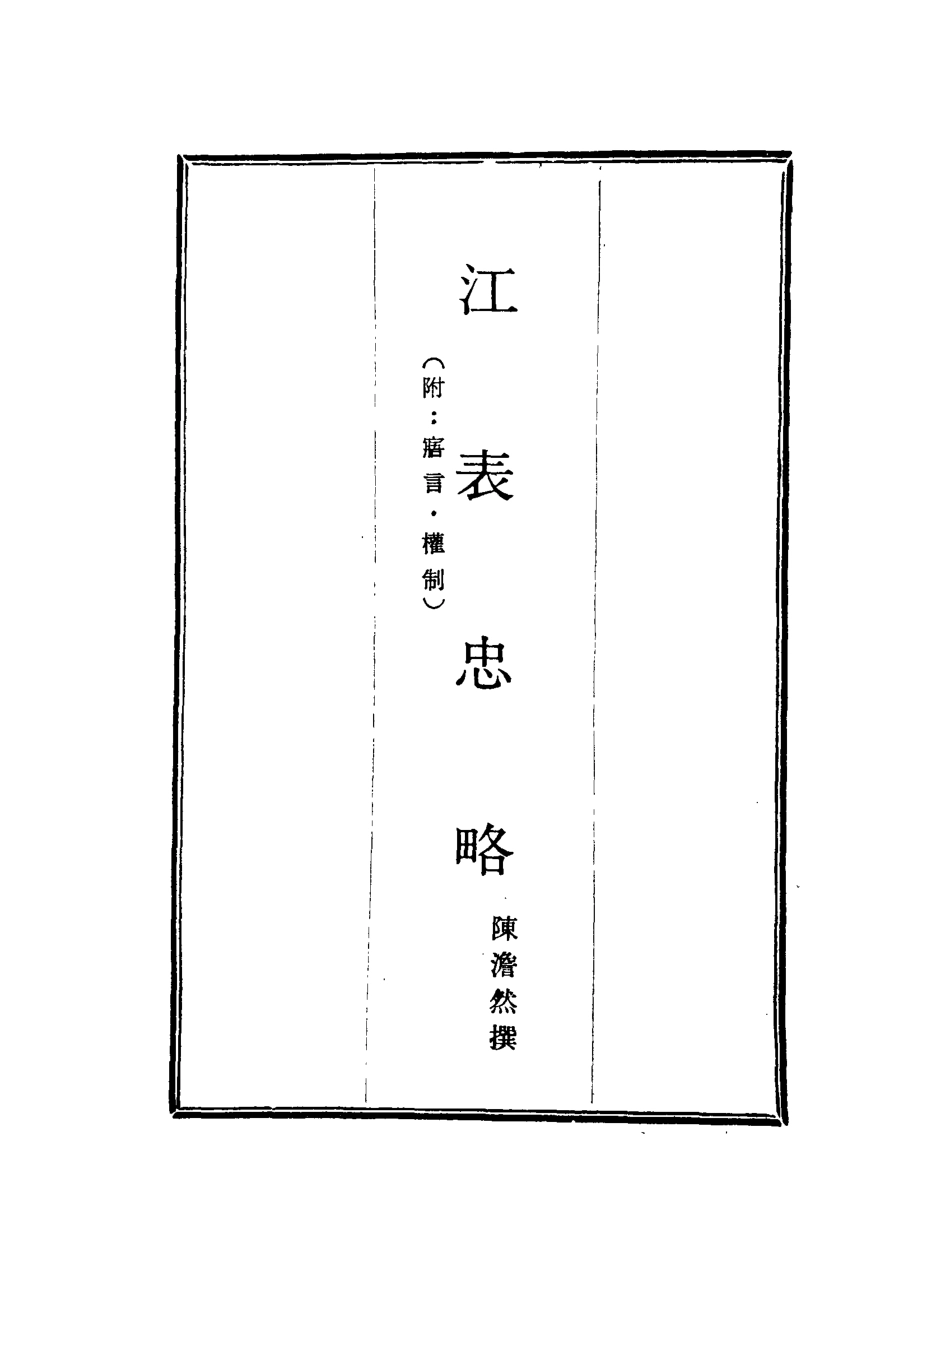 江表忠略
陳澹然撰
（附：寤言·權制）